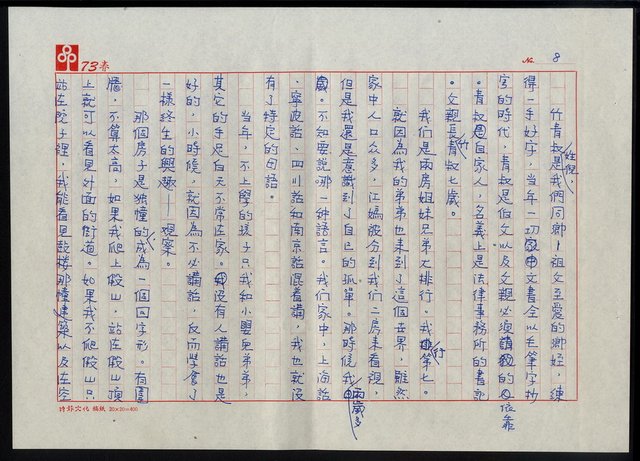 73春
No. 8
竹青叔是我們同鄉──祖父至愛的鄉姪，姓倪，練
得一手好字，當年一切家中文書全以毛筆字抄
寫的時代，青叔是伯父以及父親必須請教的依靠
。青叔因自家人，名義上是法律事務所的書記
。父親長竹青叔七歲。
我們是兩房姐妹兄弟大排行。我排行第七。
就因為我的弟弟也來到了這個世界，雖然
家中人口眾多，江媽被分到我們二房來看視，
但是我還是意識到了自己的孤單。那時候我兩歲多
。不知要說哪一種語言。我們家中，上海話
、寧波話、四川話和南京話混着講，我也就沒
有了特定的母語。
當年，不上學的孩子只我和小嬰兒弟弟，
其它的手足白天不常在家。沒有人講話也是
好的，小時候，就因為不必講話，反而學會了
一樣終生的興趣──觀察。
那個房子是獨幢的，成為一個回字形。有圍
牆，不算太高，如果我爬上假山，站在假山頂
上就可以看見對面的街道。如果我不爬假山只
站在院子裡，我能看見鼓樓那幢建築以及在空
綠野文化 稿紙 20×20＝400